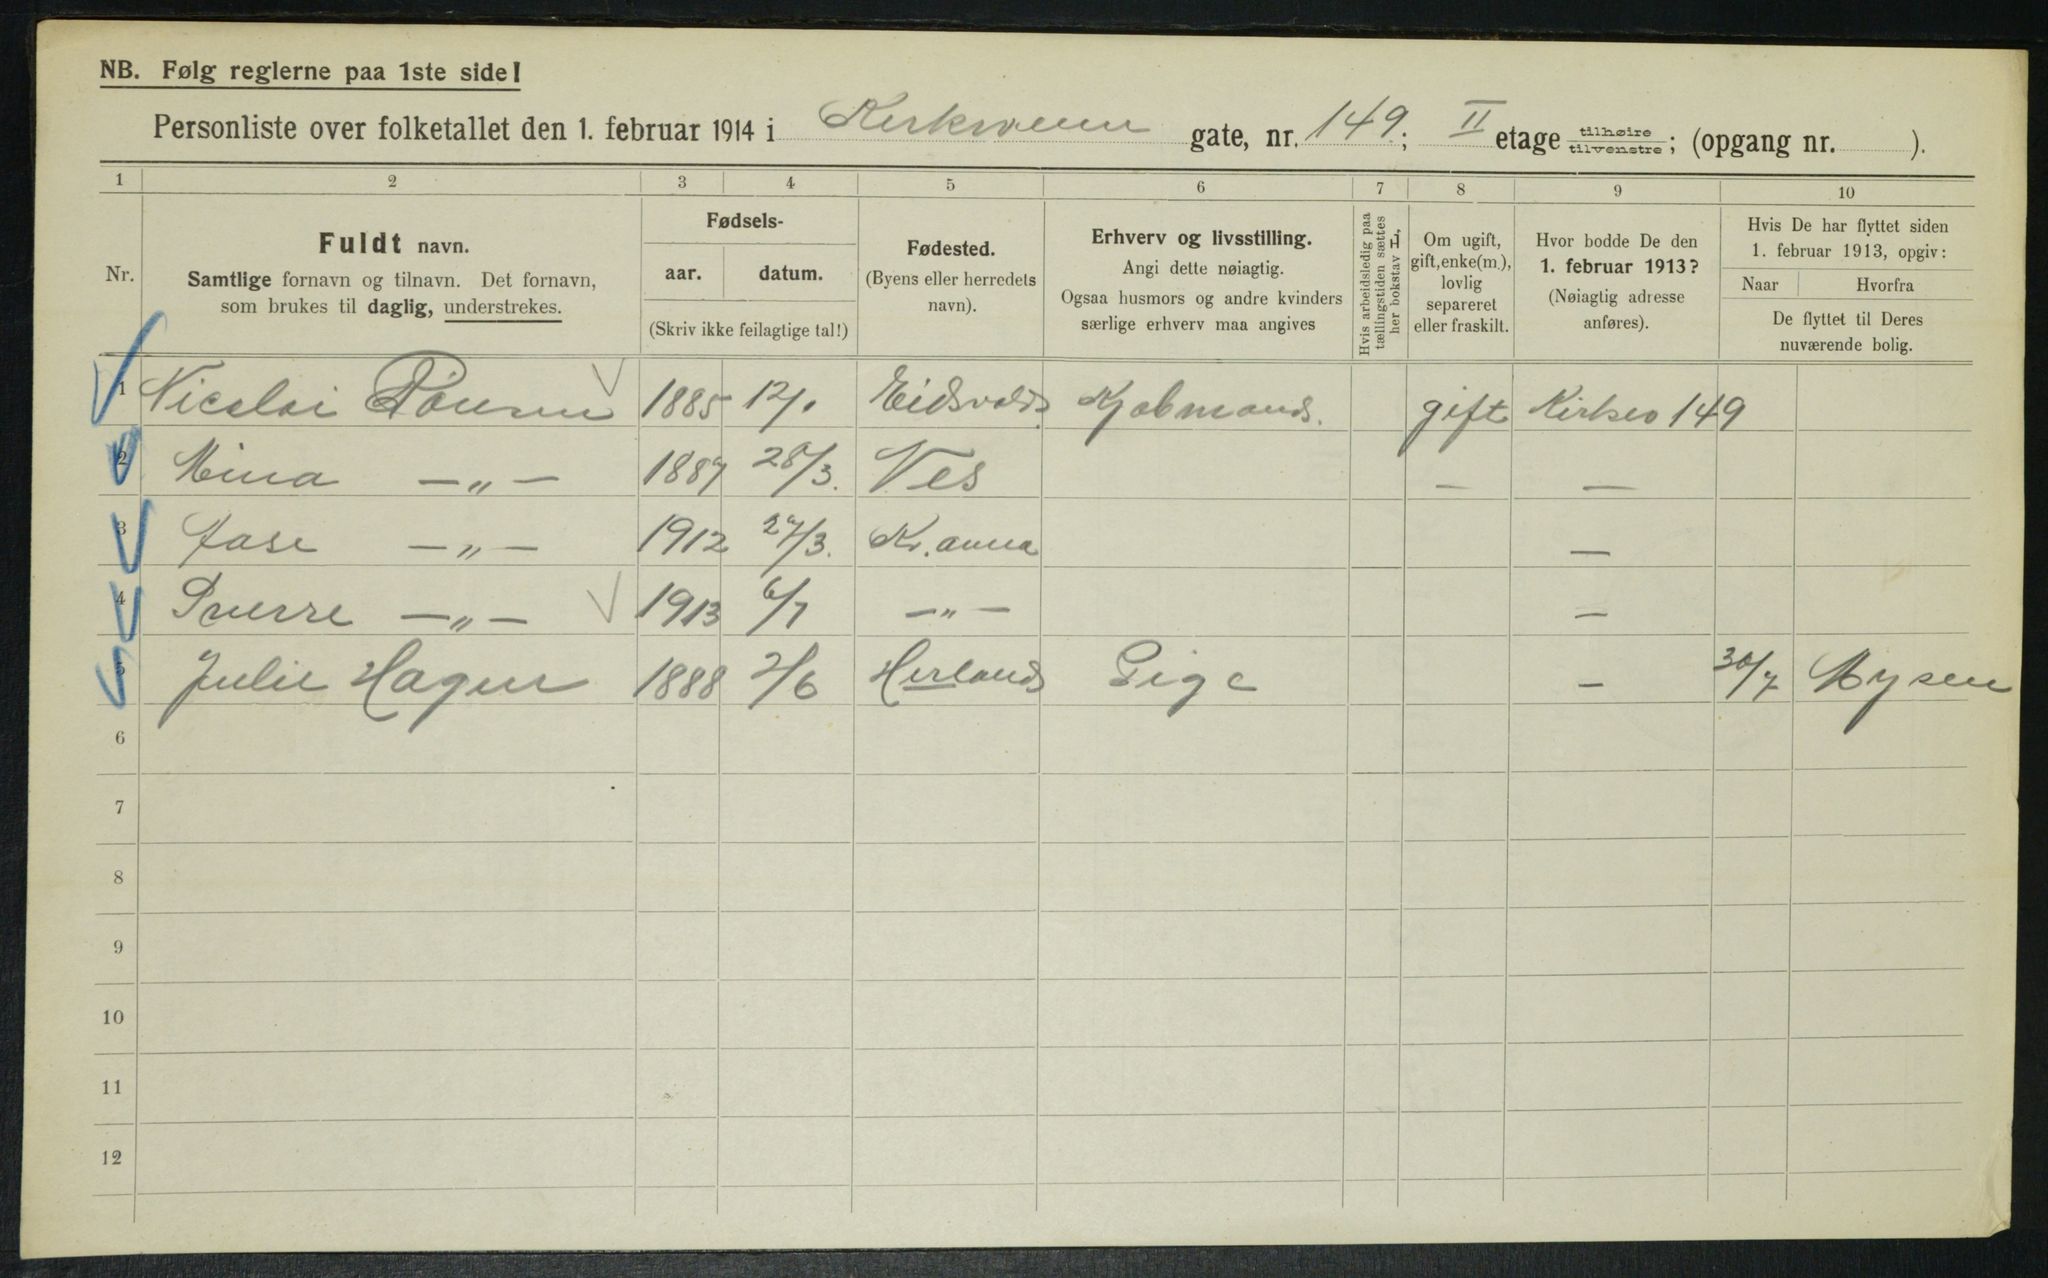 NB. Følg reglerne paa 1ste side!
Personliste over folketallet den 1. februar 1914 i Kirkeveien gate, nr. 149; II etage tilhøire / tilvenstre; (opgang nr. ).
1 2 3 4 5 6 7 8 9 10
Nr.
Fuldt navn.
Samtlige fornavn og tilnavn. Det fornavn,
som brukes til daglig, understrekes.
Fødsels-
aar. datum.
(Skriv ikke feilagtige tal!)
Fødested.
(Byens eller herredets
navn).
Erhverv og livsstilling.
Angi dette nøiagtig.
Ogsaa husmors og andre kvinders
særlige erhverv maa angives
Hvis arbeidsledig paa
tællingstiden sættes
her bokstav L,
Om ugift,
gift, enke(m.),
lovlig
separeret
eller fraskilt.
Hvor bodde De den
1. februar 1913?
(Nøiagtig adresse
anføres).
Hvis De har flyttet siden
1. februar 1913, opgiv:
Naar Hvorfra
De flyttet til Deres
nuværende bolig.
1 Nicolai 1885 Eidsvold gift Kirkev 149
2 Mina —„— 1887 28/3. Nes — —
3 Aase —„— 1912 27/3. Kr.ania —
4 Sverre —„— 1913 6/7 —„— —
5 Julie Hagen 1888 2/6 Herland Pige — 30/7 Mysen
6
7
8
9
10
11
12